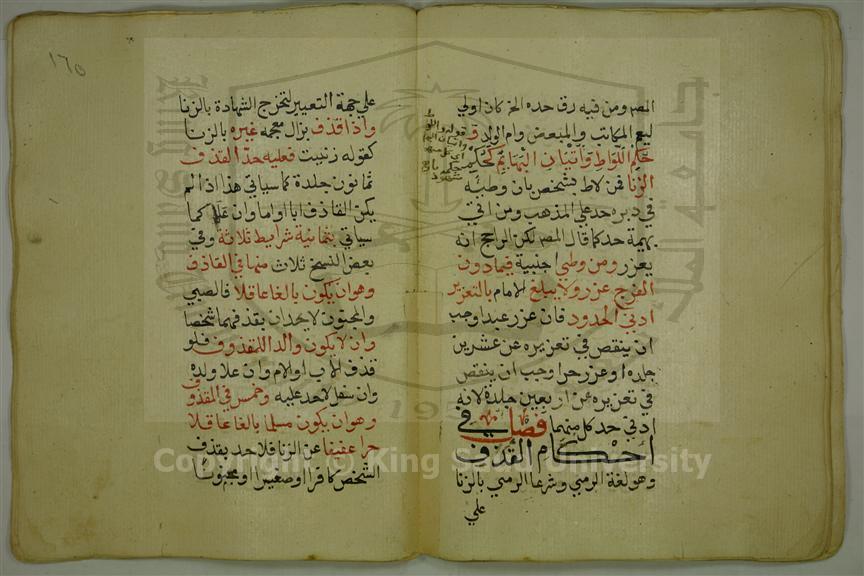 المصر ومن فيه رق حده الحر كان اولي
ليعم المكاتب والمبعض وام الولد
حكم اللواط واتيان البهايم كحكم
الزنا فمن لاط بشخص بان وطئه
في دبره حد علي المذهب ومن اتي
بهيمة حد كما قال المصر لكن الراجح انه
يعزر ومن وطي اجنبية فيما دون
الفرج عزر ولا يبلغ الامام بالتعزير
ادني الحدود فان عزر عبدا وجب
ان ينقص في تعزيره عن عشرين
جلدة او عزر حرا وجب ان ينقص
في تعزيره عن اربعين جلدة لانه
ادني حد كل منهما فصل في
احكام القذف
وهو لغة الرمي وشرعا الرمي بالزنا
علي
١٦٥
علي جهة التعيير لتخرج الشهادة بالزنا
واذا قذف غيره بالزنا
كقوله زنيت فعليه حد القذف
ثمانون جلدة كما سياتي هذا اذا لم
يكن القاذف ابا او اما وان عليا كما
سياتي بثمانية شرايط ثلاثة وفي
بعض النسخ ثلاث منها في القاذف
وهو ان يكون بالغا عاقلا فالصبي
والمجنون لا يحدان بقذفهما شخصا
وان لا يكون والدا للمقذوف فلو
قذف الاب او الام وان علا ولده
وان سفل لا حد عليه وخمس في المقذوف
وهو ان يكون مسلما بالغا عاقلا
حرا عفيفا عن الزنا فلا حد بقذف
الشخص كافرا او صغيرا او مجنونا
Copyright © King Saud University
195